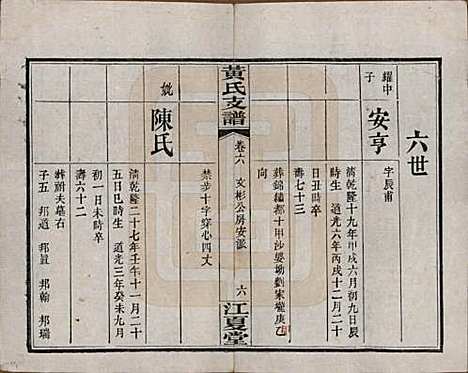 六世
耀中
子
安亨
字辰甫
清乾隆十九年甲戌六月初九日辰
時生 道光六年丙戌十二月二十
日丑時卒
壽七十三
葬錦繡都十甲沙婆坳劉宋壠庚乙
向
黃氏支譜
卷六 文彬公房安派
六
江夏堂
禁步十字穿心四丈
妣
陳氏
清乾隆二十七年壬午十一月二十
五日巳時生 道光三年癸未九月
初一日未時卒
壽六十二
葬祔夫墓右
子五 邦道 邦置 邦翰 邦瑞